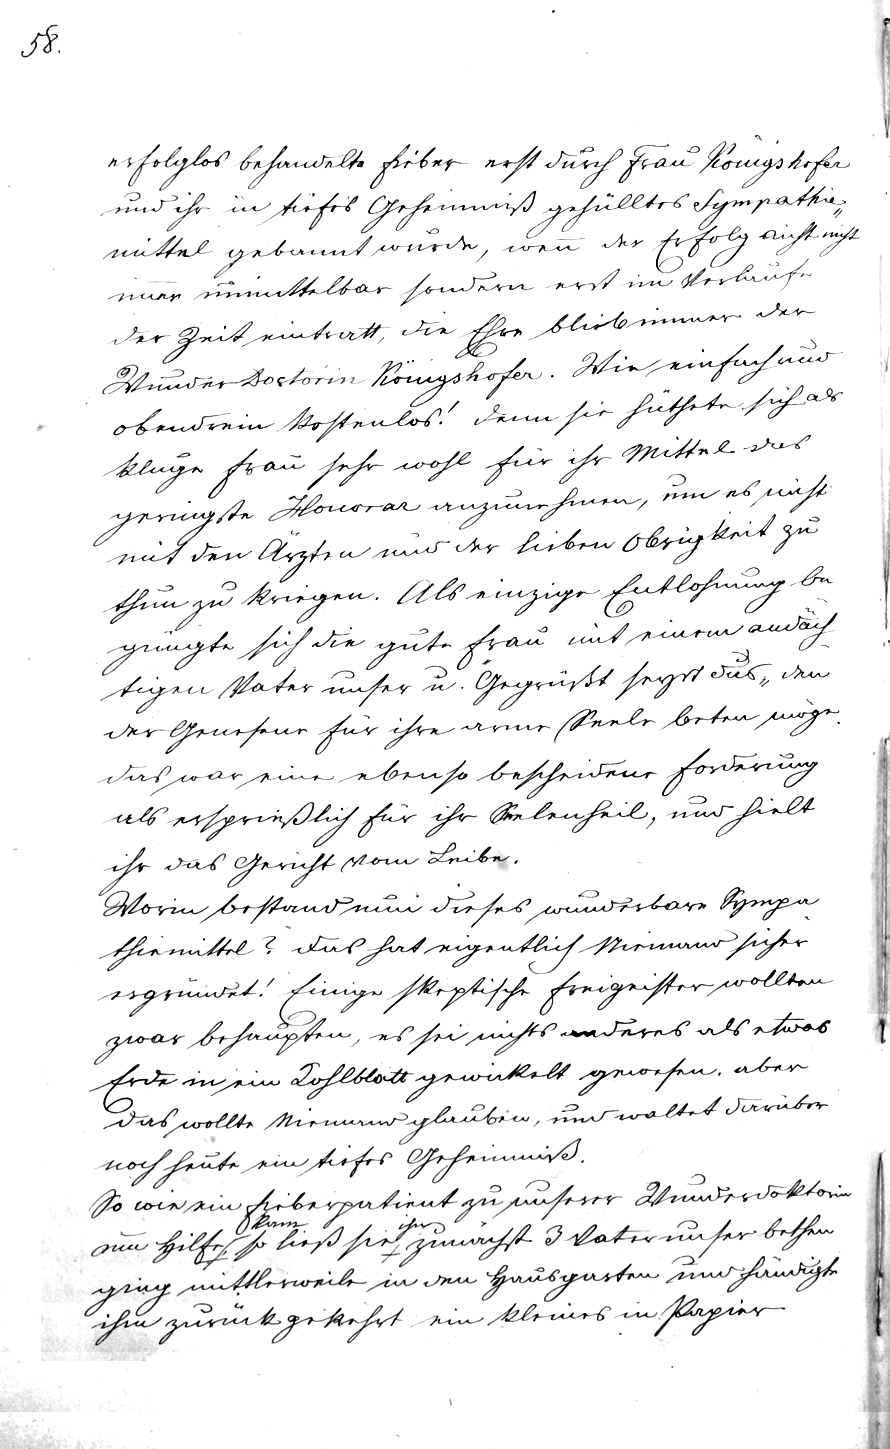 58.
erfolglos behandelte Fieber erst durch Frau Königshofer
und ihr in tiefes Geheimniß gehülltes Sympathie„
mittel gebannt wurde, wenn der Erfolg auch nicht
immer unmittelbar sondern erst im Verlaufe
der Zeit eintratt, die Ehre blieb immer der
Wunder Doctorin Königshofer. Wie einfach und
obendrein kostenlos! denn sie hüthete sich als
kluge Frau sehr wohl für ihr Mittel das
geringste Honorar anzunehmen, um es nicht
mit den Ärzten und der lieben Obrigkeit zu
thun zu kriegen. Als einzige Entlohnung be
gnügte sich die gute Frau mit einem andäch
tigen Vater unser u. "Gegrüßt seyst du„ den
der Genesene für ihre arme Seele beten möge.
das war eine ebenso bescheidene Forderung
als ersprießlich für ihr Seelenheil, und hielt
ihr das Gericht vom Leibe.
Worin bestand nun dieses wunderbare Sympa
thiemittel? das hat eigentlich Niemand sicher
ergründet! Einige skeptische Freigeister wollten
zwar behaupten, es sei nichts anderes als etwas
Erde in ein Kohlblatt gewickelt gewesen. aber
das wollte Niemand glauben, und waltet darüber
noch heute ein tiefes Geheimniß.
So wie ein Fieberpatient zu unserer Wunderdoktorin
um Hilfe kam, so ließ sie ihn zunächst 3 Vater unser bethen
ging mittlerweile in den Hausgarten und händigte
ihm zurückgekehrt ein kleines in Papier